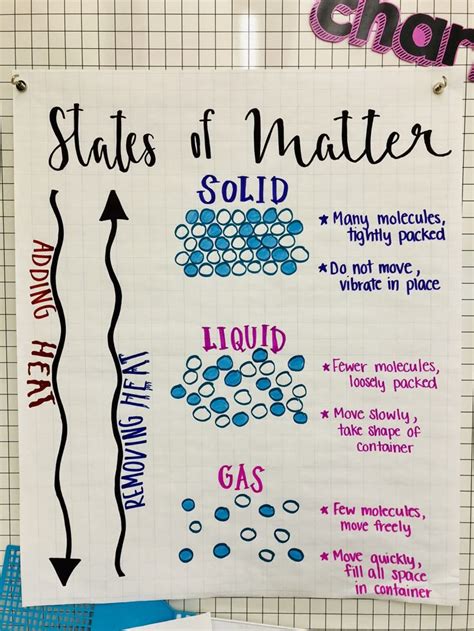 char
States of Matter
SOLID
★ Many molecules,
tightly packed
★ Do not move,
vibrate in place
ADDING HEAT
REMOVING HEAT
LIQUID
★ Fewer molecules,
loosely packed
★ Move slowly,
take shape of
container
GAS
★ Few molecules,
move freely
★ Move quickly,
fill all space
in container